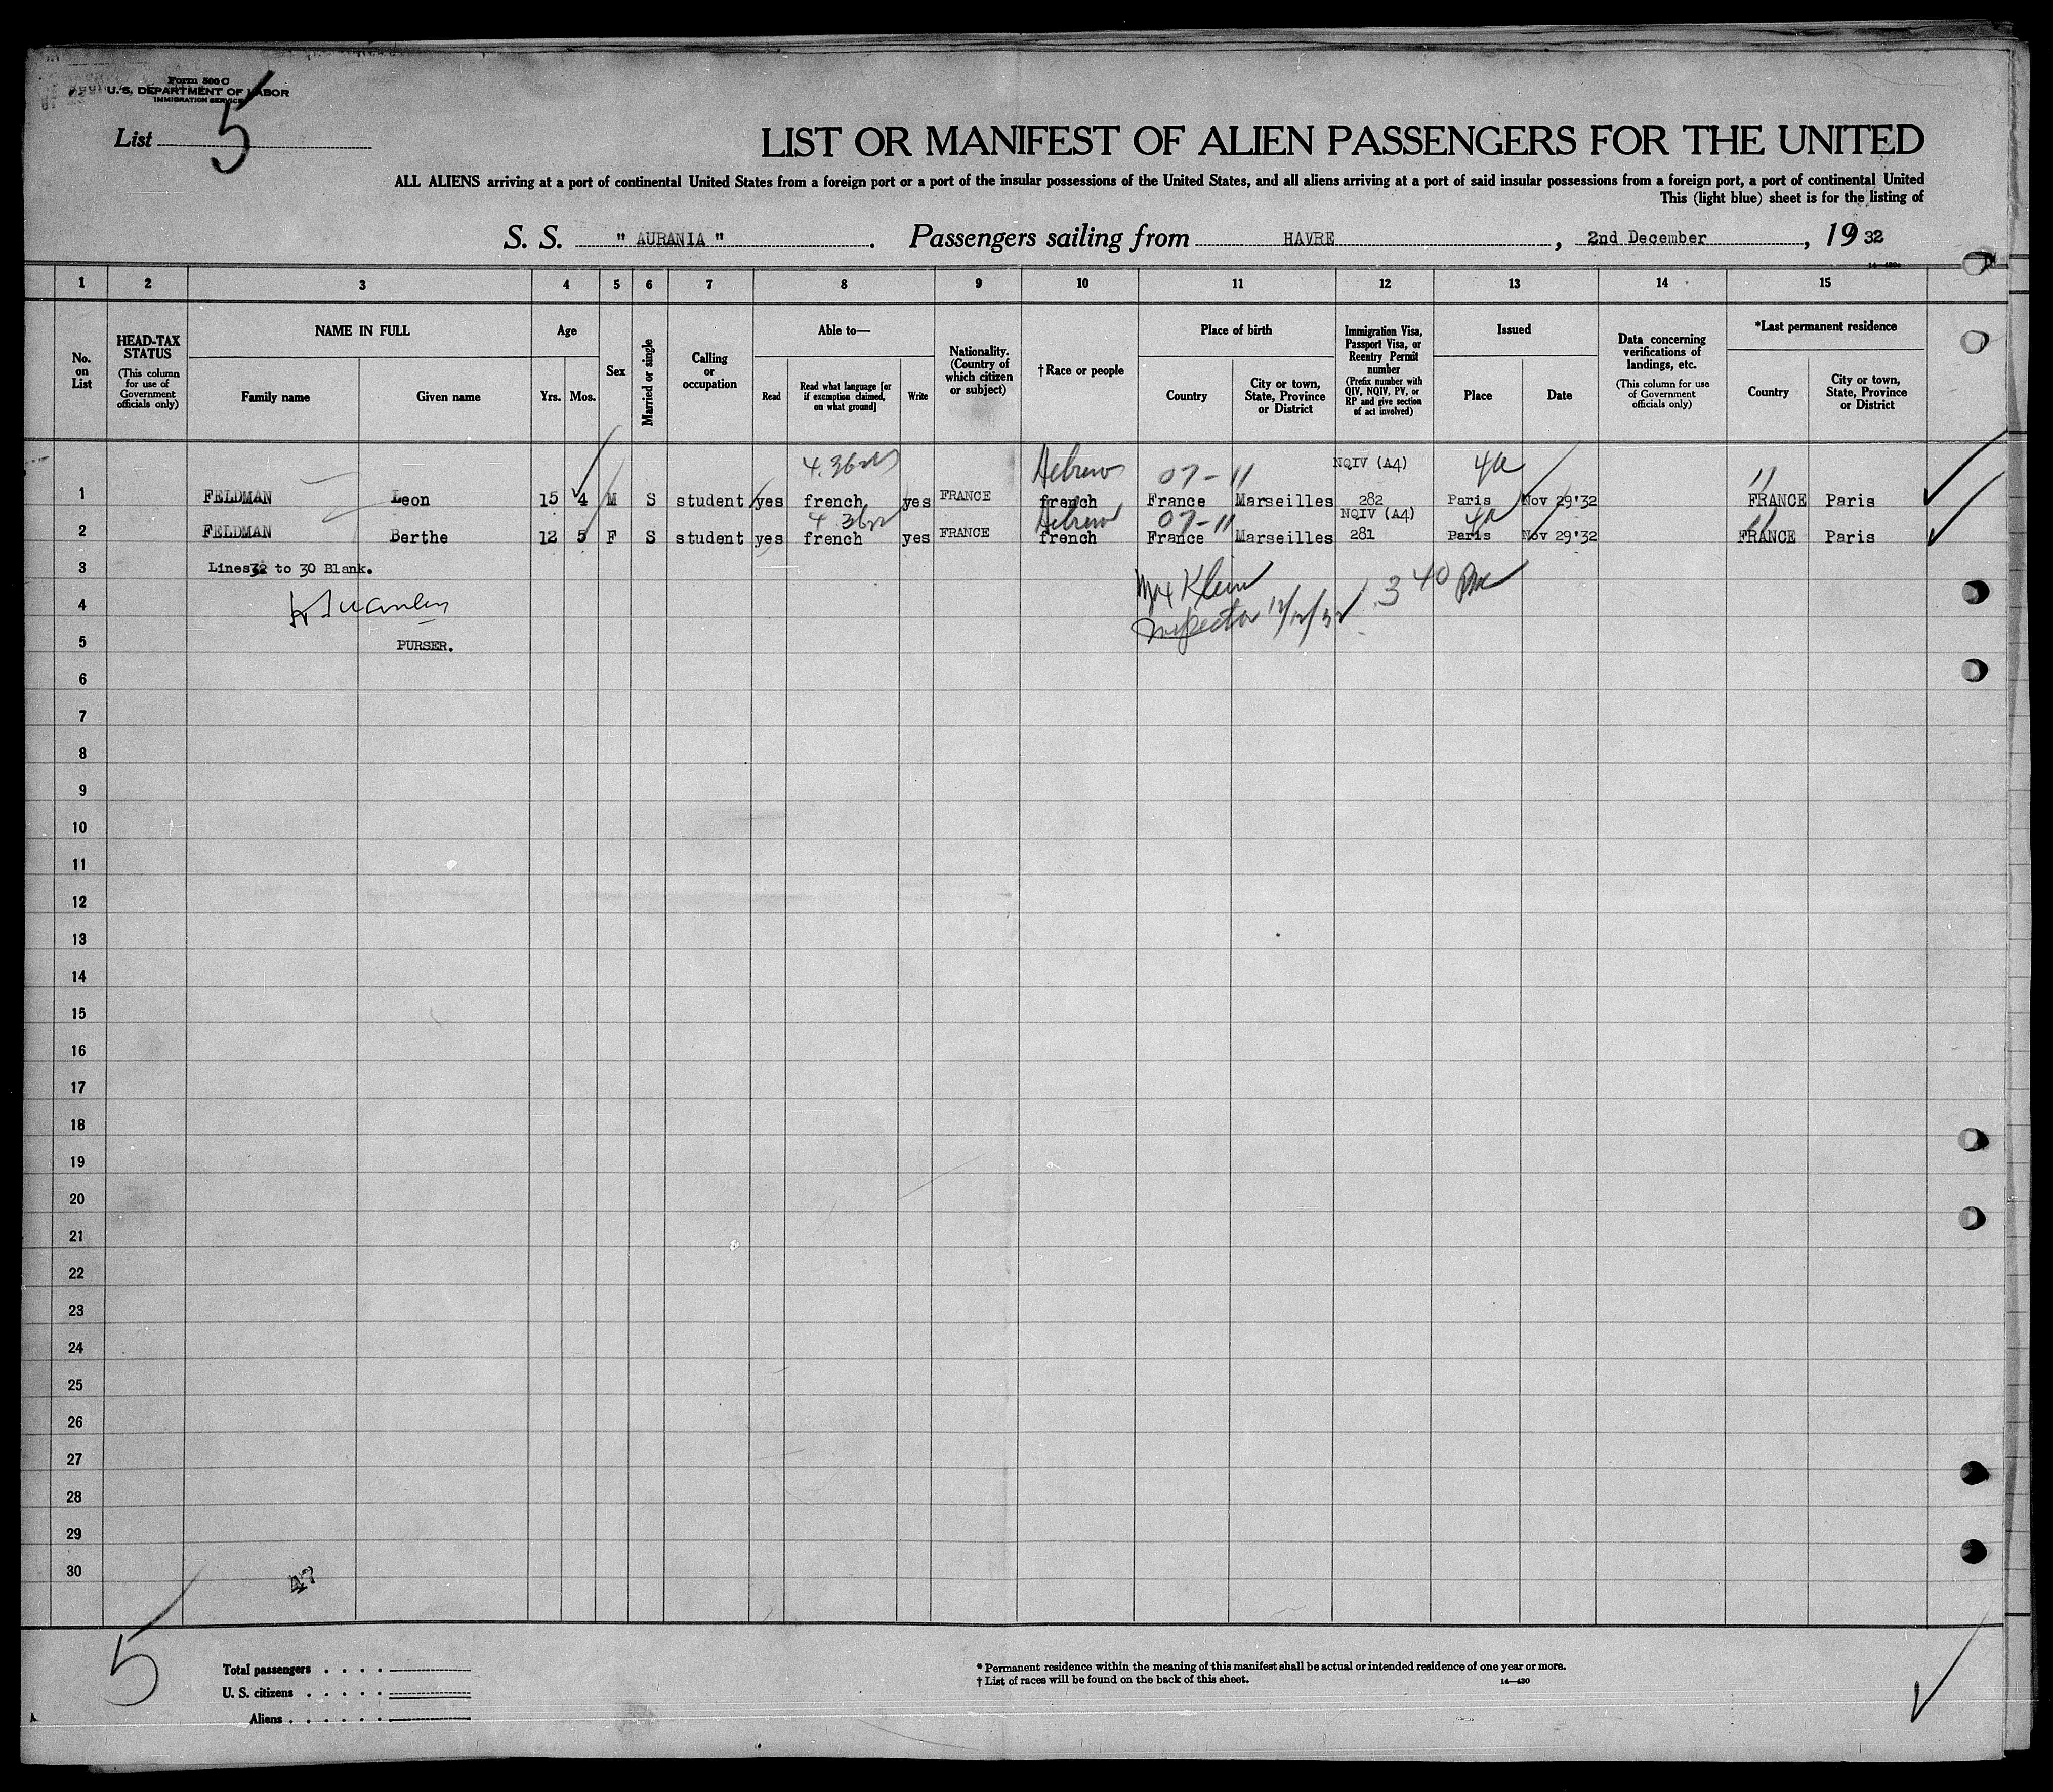 Form 500 C
U. S. DEPARTMENT OF LABOR
IMMIGRATION SERVICE
List 5
LIST OR MANIFEST OF ALIEN PASSENGERS FOR THE UNITED
ALL ALIENS arriving at a port of continental United States from a foreign port or a port of the insular possessions of the United States, and all aliens arriving at a port of said insular possessions from a foreign port, a port of continental United
This (light blue) sheet is for the listing of
S. S. " AURANIA " . Passengers sailing from HAVRE , 2nd December , 19 32
1 2 3 4 5 6 7 8 9 10 11 12 13 14 15
No. on List
HEAD-TAX STATUS (This column for use of Government officials only)
NAME IN FULL
Family name Given name
Age
Yrs. Mos.
Sex
Married or single
Calling or occupation
Able to—
Read Read what language [or if exemption claimed, on what ground] Write
Nationality. (Country of which citizen or subject)
†Race or people
Place of birth
Country City or town, State, Province or District
Immigration Visa, Passport Visa, or Reentry Permit number (Prefix number with QIV, NQIV, PV, or RP and give section of act involved)
Issued
Place Date
Data concerning verifications of landings, etc. (This column for use of Government officials only)
*Last permanent residence
Country City or town, State, Province or District
Hebrew 07-11 NQIV (A4)
1 FELDMAN Leon 15 4 M S student yes french yes FRANCE french France Marseilles 282 Paris Nov 29'32 FRANCE Paris
Hebrew 07-11 NQIV (A4)
2 FELDMAN Berthe 12 5 F S student yes french yes FRANCE french France Marseilles 281 Paris Nov 29'32 FRANCE Paris
3 Lines 3 to 30 Blank.
Max Klein 3 40 PM
4
Inspector 12/12/32
5 PURSER.
6
7
8
9
10
11
12
13
14
15
16
17
18
19
20
21
22
23
24
25
26
27
28
29
30
47
5
Total passengers . . . .
U. S. citizens . . . . .
Aliens . . . . . .
* Permanent residence within the meaning of this manifest shall be actual or intended residence of one year or more.
† List of races will be found on the back of this sheet. 14—430